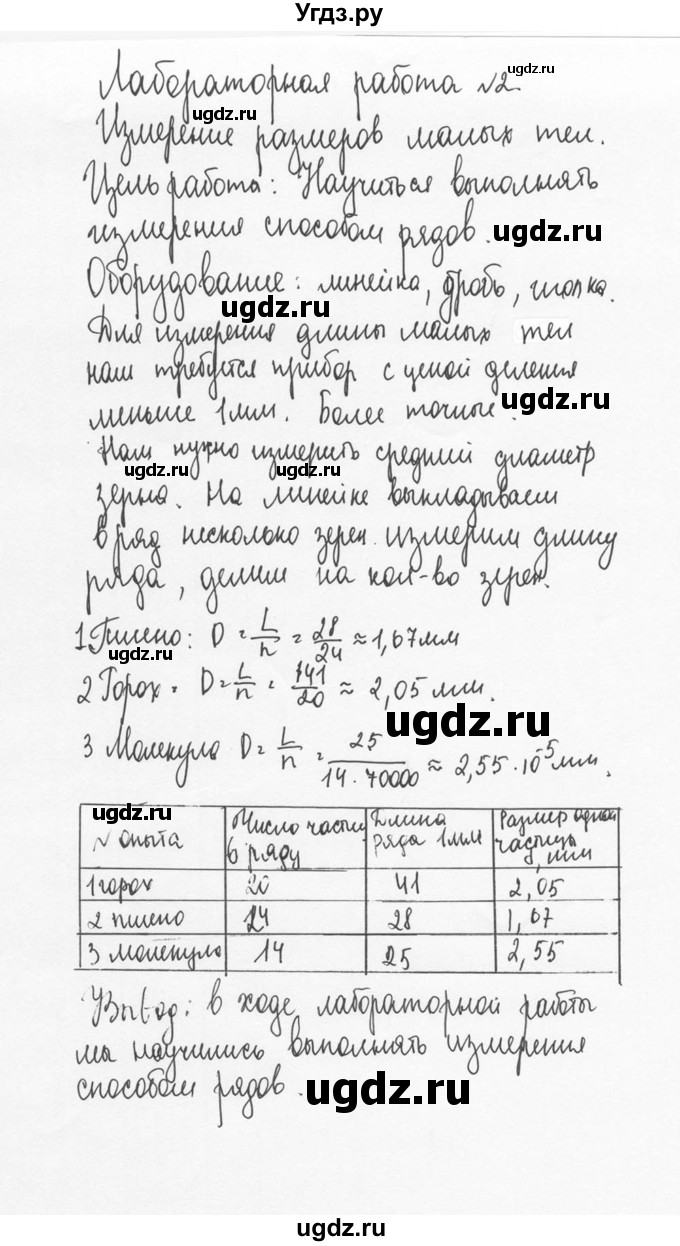 Угдз.ру
Лабораторная работа №2.
Измерение размеров малых тел.
Цель работа: Научиться выполнять
измерения способом рядов.
Оборудование: линейка, дробь, иголка.
Для измерения длины малых тел
нам требуется прибор с ценой деления
меньше 1мм. Более точные.
Нам нужно измерить средний диаметр
зерна. На линейке выкладываем
в ряд несколько зерен. измерим длину
ряда, делим на кол-во зерен.
1 Пшено: D = L/n = 28/24 ≈ 1,67мм
2 Горох = D = L/n = 141/20 ≈ 2,05 мм.
3 Молекула D = L/n = 25/14·70000 ≈ 2,55·10⁻⁵мм.
№ опыта | Число частиц в ряду | Длина ряда 1мм | Размер одной частицы, мм
1 горох | 20 | 41 | 2,05
2 пшено | 24 | 28 | 1,67
3 молекула | 14 | 25 | 2,55
Вывод: в ходе лабораторной работы
мы научились выполнять измерения
способом рядов.
ugdz.ru
ugdz.ru
ugdz.ru
ugdz.ru
ugdz.ru
ugdz.ru
ugdz.ru
ugdz.ru
ugdz.ru
ugdz.ru
ugdz.ru
ugdz.ru
ugdz.ru